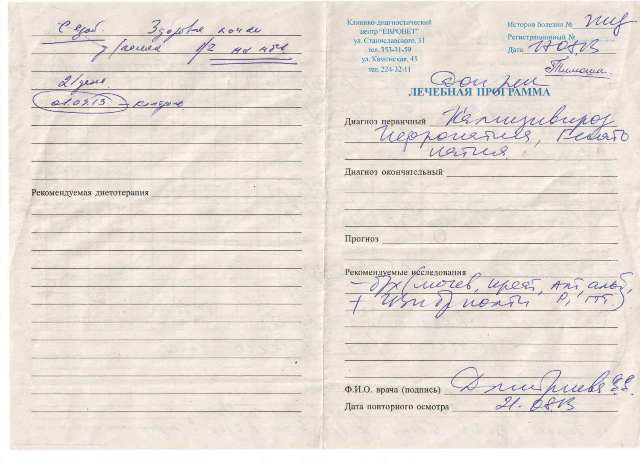 С едой. Здоровые почки
2/день
01.09.13
Рекомендуемая диетотерапия
Клинико-диагностический
центр "ЕВРОВЕТ"
ул. Станиславского, 31
тел. 353-31-59
ул. Каменская, 45
тел. 224-32-11
История болезни №
Регистрационный №
Дата 17.08.13
Тимоша.
ЛЕЧЕБНАЯ ПРОГРАММА
Диагноз первичный Калицивироз
Нефропатия, Гепато
патия
Диагноз окончательный
Прогноз
Рекомендуемые исследования
- б/х (мочев, креат, Алт, альб,
+ УЗИ бр полости P, )
Ф.И.О. врача (подпись) Дмитриева
Дата повторного осмотра 21.08.13